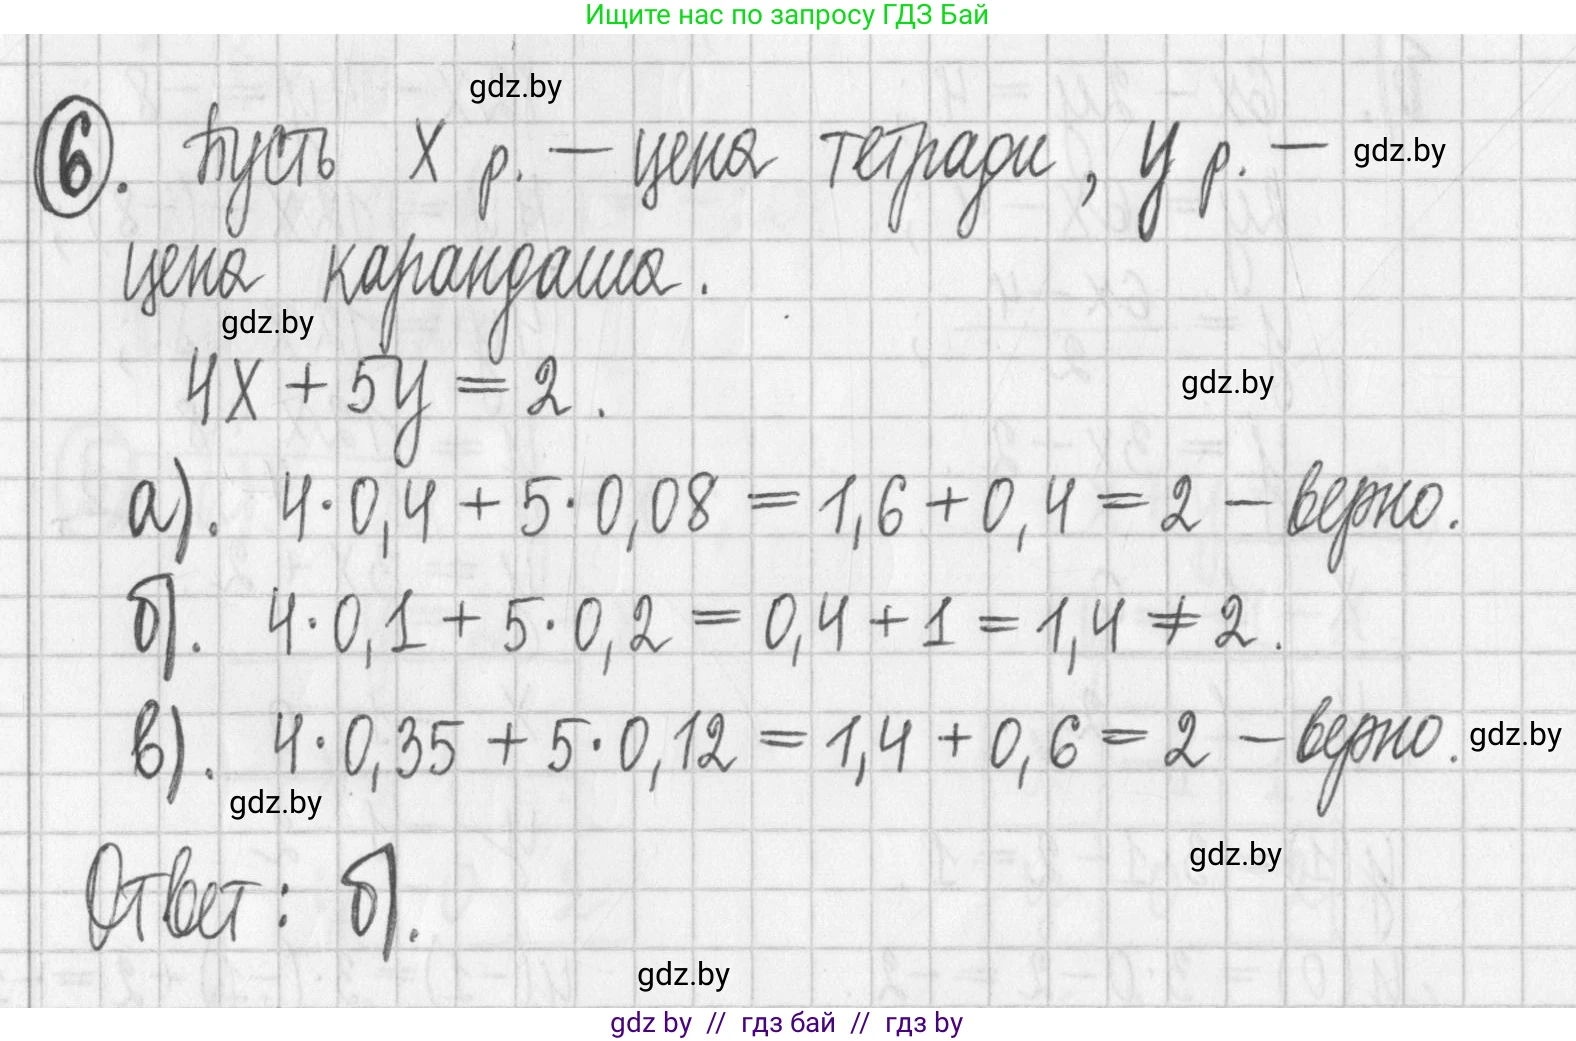 Ищите нас по запросу ГДЗ Бай
gdz.by
6. Пусть x р. — цена тетради, y р. — gdz.by
цена карандаша.
gdz.by
4x + 5y = 2.
gdz.by
а). 4·0,4 + 5·0,08 = 1,6 + 0,4 = 2 – верно.
б). 4·0,1 + 5·0,2 = 0,4 + 1 = 1,4 ≠ 2.
в). 4·0,35 + 5·0,12 = 1,4 + 0,6 = 2 – верно. gdz.by
gdz.by
gdz.by
Ответ: б).
gdz.by
gdz by // гдз бай // гдз by